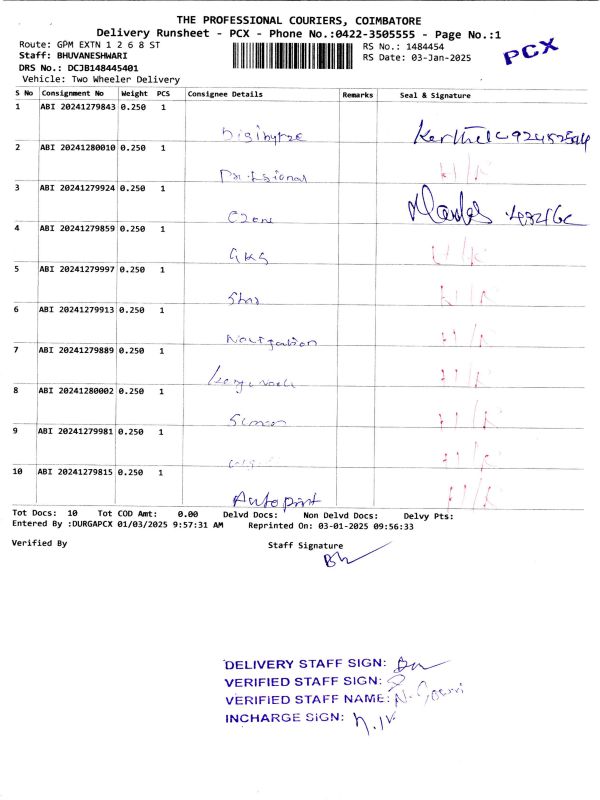 THE PROFESSIONAL COURIERS, COIMBATORE
Delivery Runsheet - PCX - Phone No.:0422-3505555 - Page No.:1
Route: GPM EXTN 1 2 6 8 ST
RS No.: 1484454
PCX
Staff: BHUVANESHWARI
RS Date: 03-Jan-2025
DRS No.: DCJB148445401
Vehicle: Two Wheeler Delivery
S No Consignment No Weight PCS Consignee Details Remarks Seal & Signature
1 ABI 20241279843 0.250 1
2 ABI 20241280010 0.250 1
3 ABI 20241279924 0.250 1
4 ABI 20241279859 0.250 1
GKS
5 ABI 20241279997 0.250 1
6 ABI 20241279913 0.250 1
Navigation
7 ABI 20241279889 0.250 1
8 ABI 20241280002 0.250 1
9 ABI 20241279981 0.250 1
10 ABI 20241279815 0.250 1
Autoprint
Tot Docs: 10 Tot COD Amt: 0.00 Delvd Docs: Non Delvd Docs: Delvy Pts:
Entered By :DURGAPCX 01/03/2025 9:57:31 AM Reprinted On: 03-01-2025 09:56:33
Verified By Staff Signature
DELIVERY STAFF SIGN:
VERIFIED STAFF SIGN:
VERIFIED STAFF NAME:
INCHARGE SIGN: